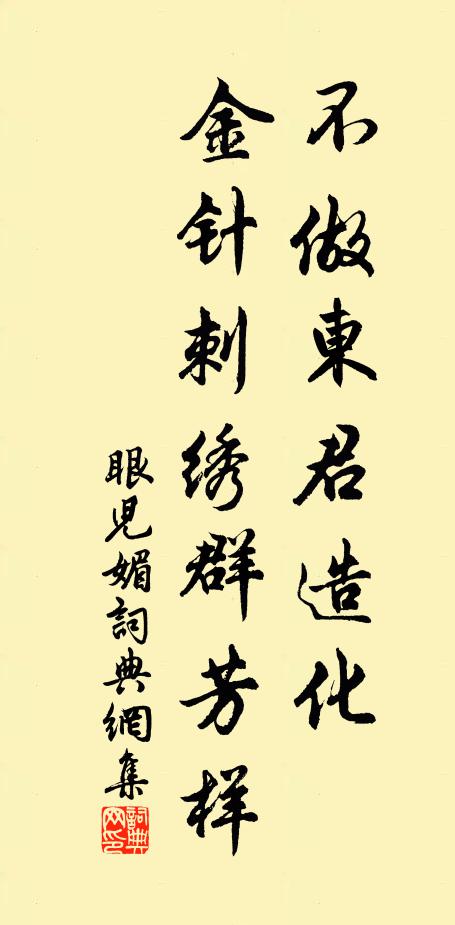 不做東君造化
金针刺绣群芳样
眼児媚詞典網集
詞典网印